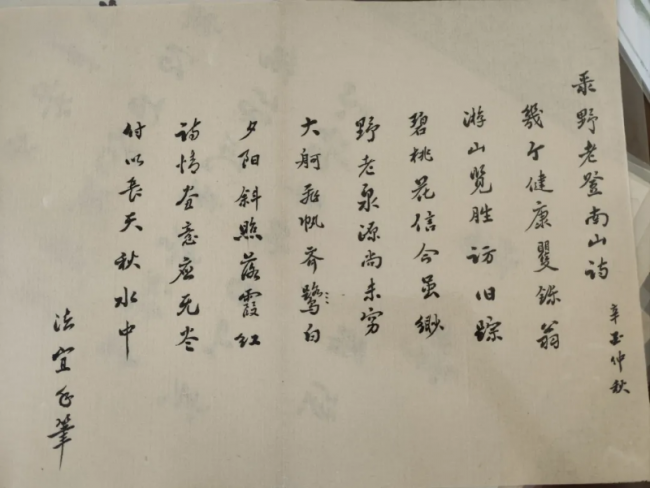 野老登南山诗
辛丑仲秋
幾个健康矍铄翁
游山览胜访旧踪
碧桃花信今虽缈
野老泉源尚未穷
大舸帆齐鹭白
夕阳斜照落霞红
诗情画意应无尽
付以長天秋水中
法宜筆